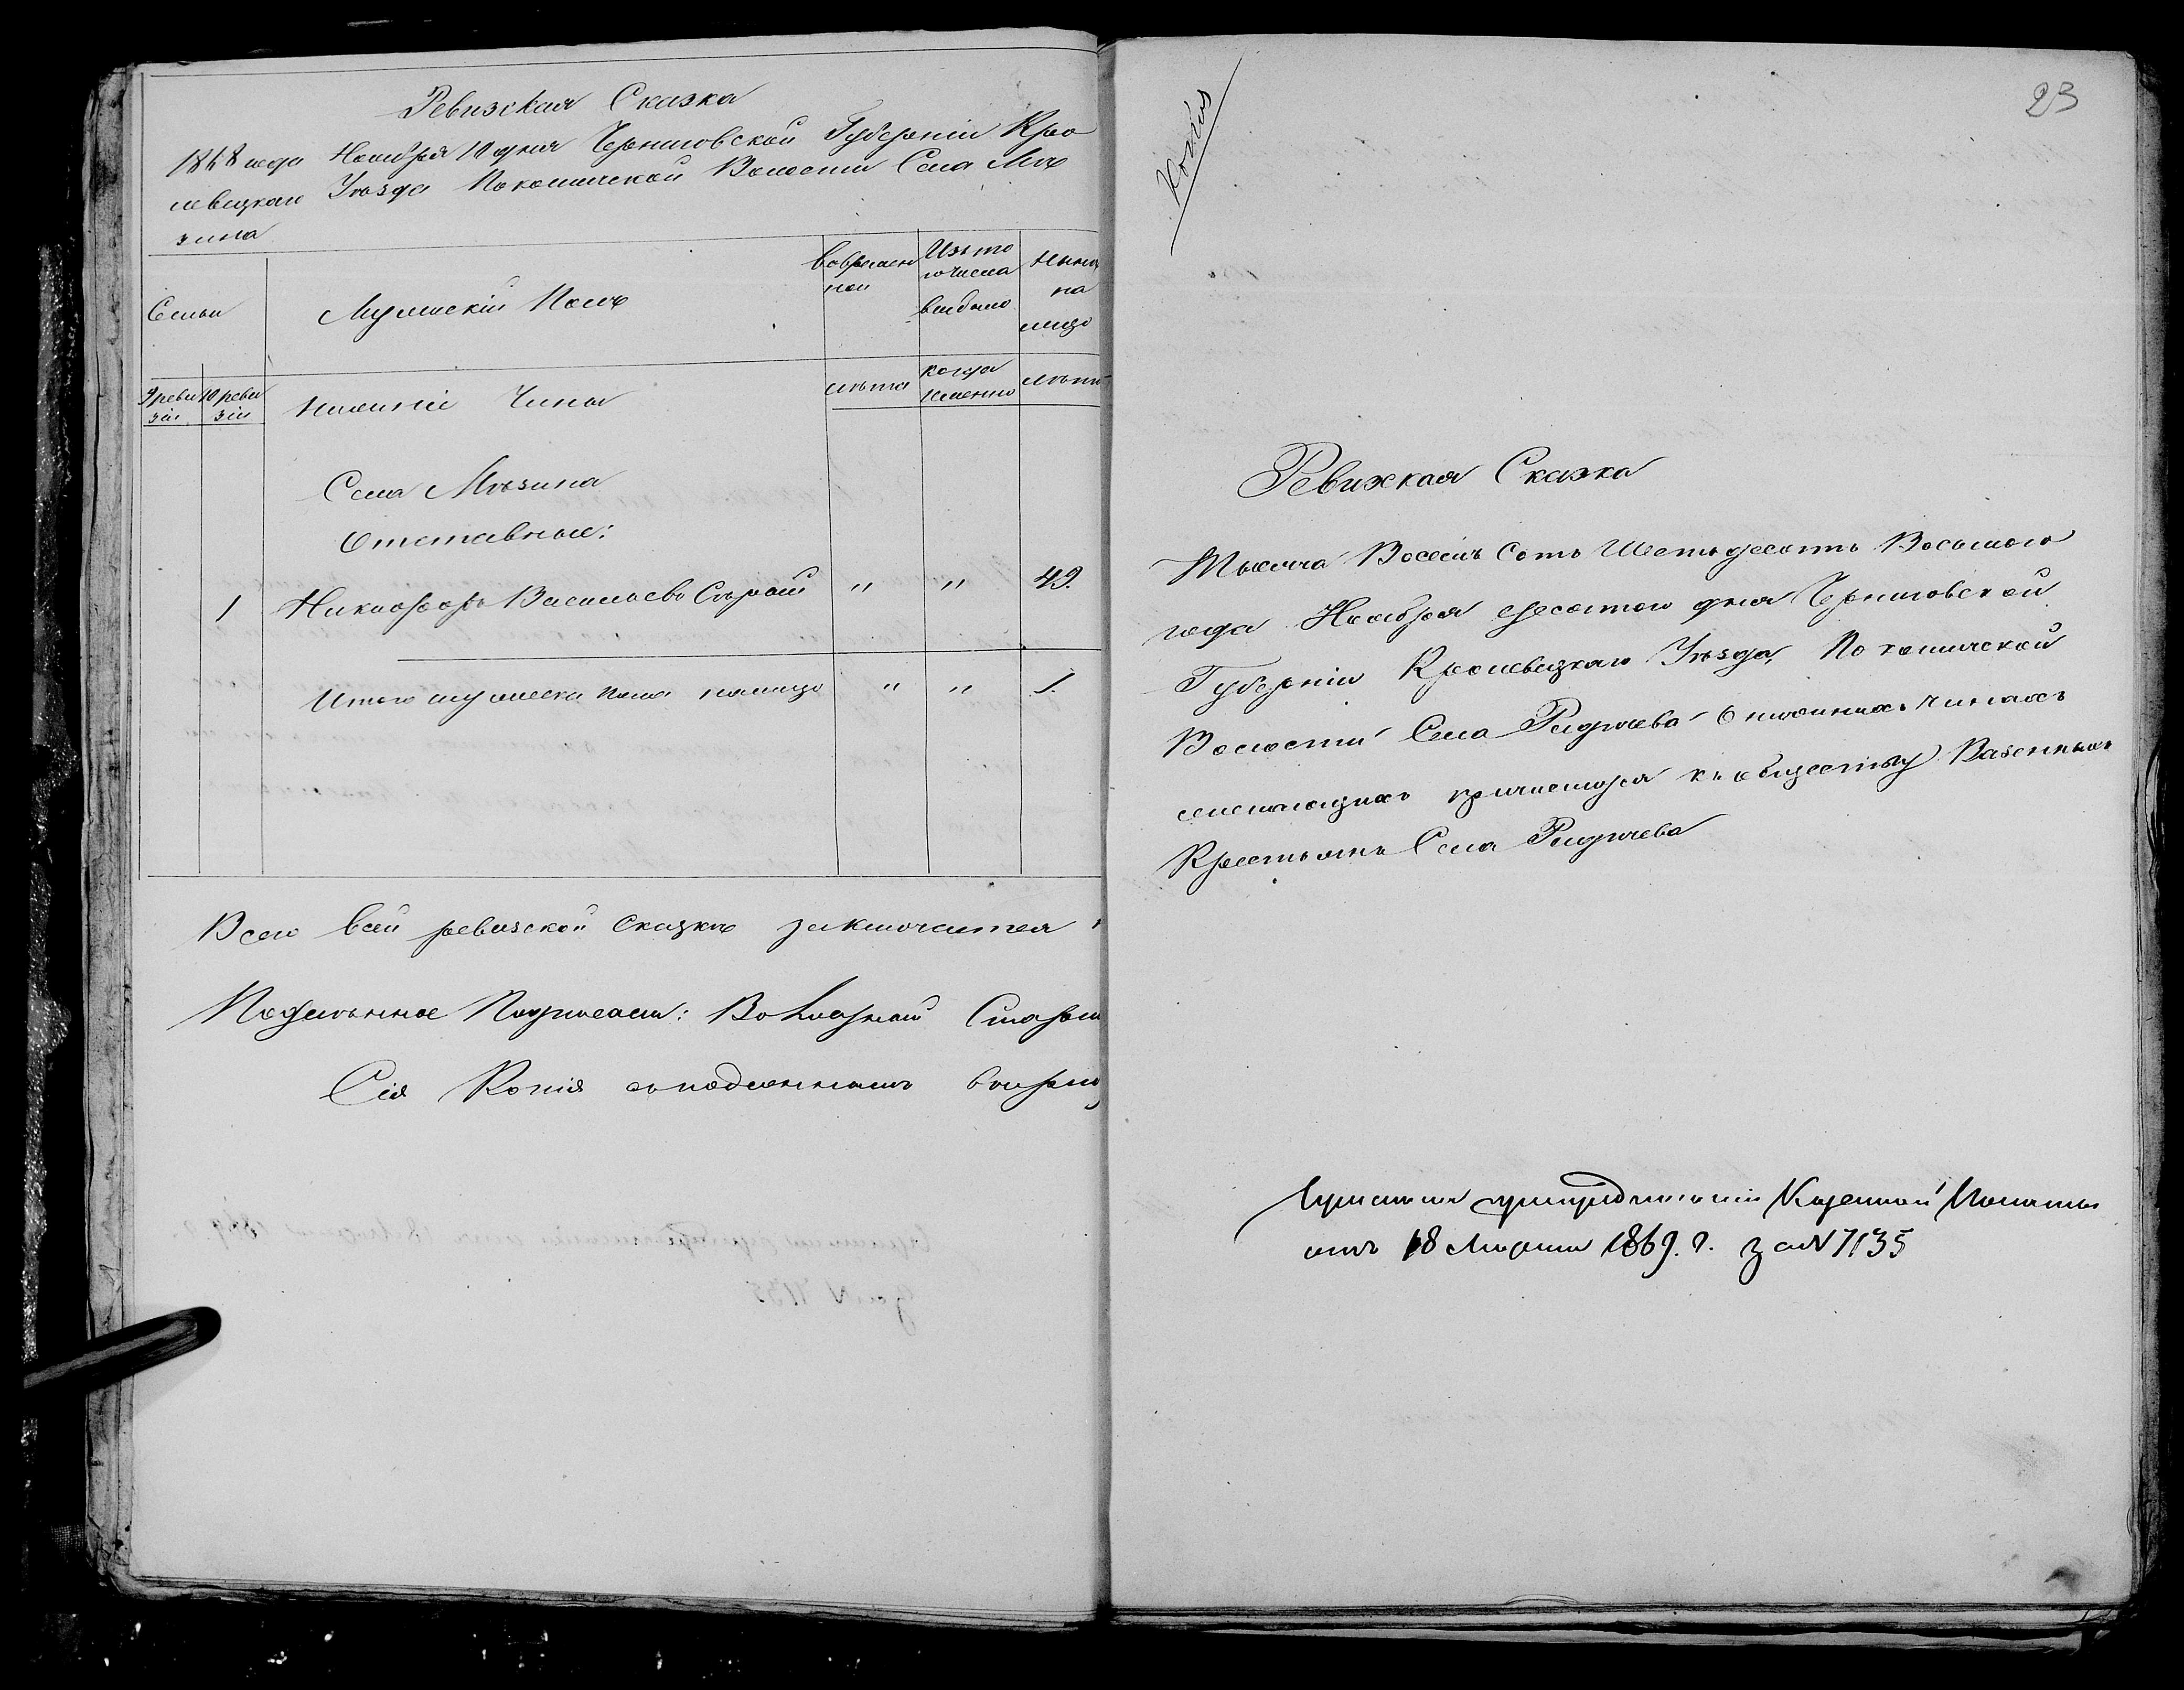 Ревизская Сказка
1868 года Ноября 10 дня Черниговской Губерніи Кро
левецкаго Уѣзда Покошичской Волости Села Мѣ
зина
Семьи
Мужескій Полъ
Изъ то
го числа
выбыло
Нынѣ
на
лицо
9 реви
зіи
10 реви
зіи
Нижніе Чины
лѣта
когда
именно
лѣта
Села Мѣзина
Отставные:
1 Никифоръ Васильевъ " " 49.
Итого мужеска пола налицо " " 1.
Всего в сей ревизской Сказкѣ заключается
Подлинное Подписали: Волостной Старши
Сія Копія съ подлинною вѣрна
Копія
23
Ревижская Сказка
Тысяча Восемь Сотъ Шестьдесятъ Восьмого
года Ноября десятого дня Черниговской
Губерніи Кролевецкаго Уѣзда, Покошичской
Волости Села Радичева О нижнихъ Чинахъ
желающихъ причислится къ обществу Казенныхъ
Крестьянъ Села Радичева
Казенной Палаты
отъ 18 Марта 1869. г. за N 7135